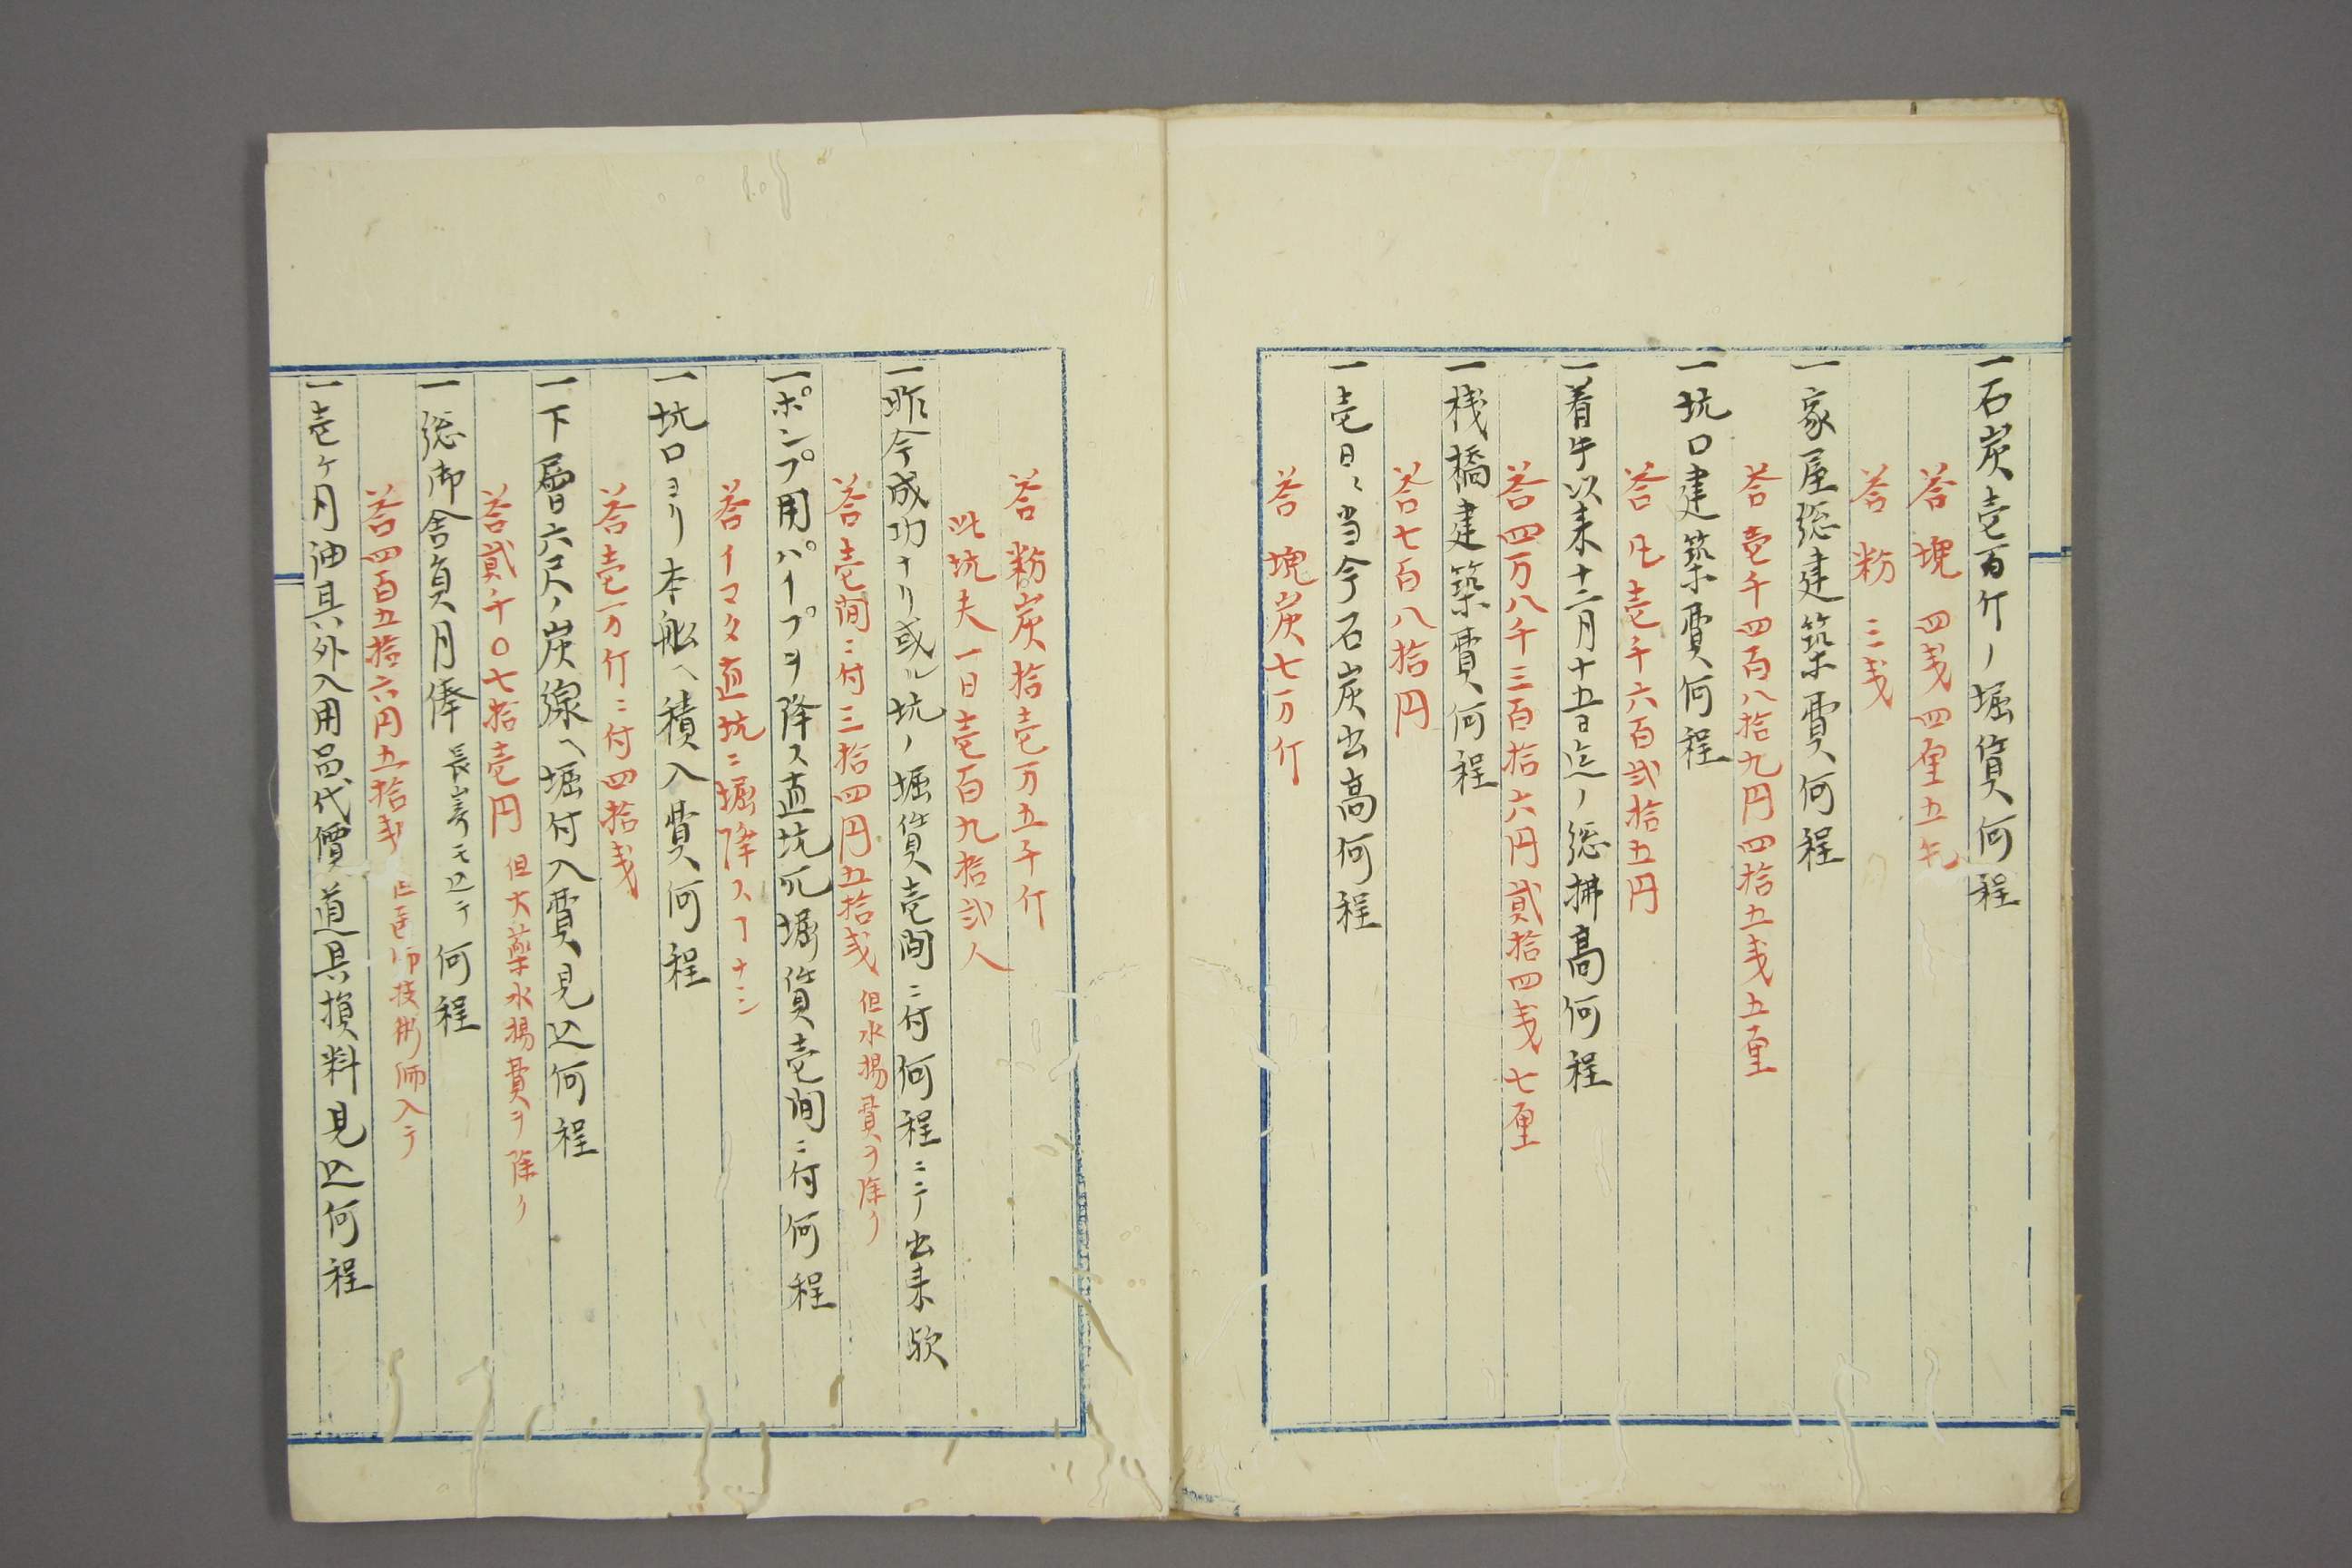 一石炭壱百斤ノ堀賃何程
答 塊 四戔四厘五毛
答 粉 三戔
一家屋惣建築費何程
答 壱千四百八拾九円四拾五戔五厘
一坑口建築費何程
答 凡壱千六百弐拾五円
一着手以来十二月十五日迄ノ惣拂高何程
答 四万八千三百拾六円貳拾四戔七厘
一桟橋建築費何程
答 七百八拾円
一壱日々当今石炭出高何程
答 塊炭七万斤
答 粉炭拾壱万五千斤
此坑夫一日壱百九拾弐人
一昨今成功ナリ或ル坑ノ堀賃壱間ニ付何程ニテ出来歟
答 壱間ニ付三拾四円五拾戔 但水揚費ヲ除ク
一ポンプ用パイプヲ降ス直坑凡堀賃壱間ニ付何程
答 イマタ直坑ニ堀降スヿナシ
一坑口ヨリ本船ヘ積入費何程
答 壱万斤ニ付四拾戔
一下層六尺ノ炭線ヘ堀付入費見込何程
答 貳千〇七拾壱円 但火薬水揚費ヲ除ク
一惣御舎負月俸 長崎モ込テ 何程
答 四百五拾六円五拾戔 但医師技術師入テ
一壱ヶ月油具外入用品代價道具損料見込何程